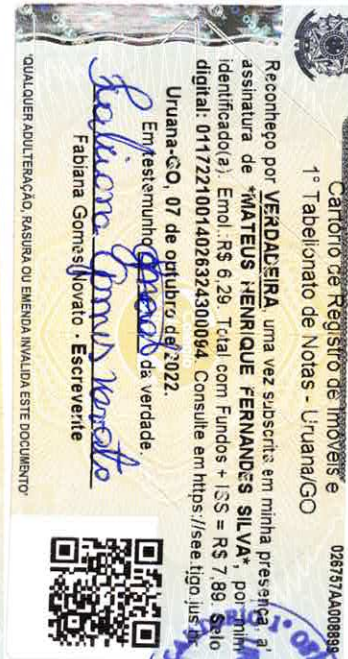 Cartório de Registro de Imóveis e
1º Tabelionato de Notas - Uruana/GO
026757AA008899
Reconheço por VERDADEIRA, uma vez subscrita em minha presença, a
assinatura de *MATEUS HENRIQUE FERNANDES SILVA*, por mim
identificado(a). Emol.:R$ 6,29. Total com Fundos + ISS = R$ 7,89. Selo
digital: 01172210014026324300094. Consulte em https://see.tjgo.jus.br
Uruana-GO, 07 de outubro de 2022.
Em testemunho da verdade.
Fabiana Gomes Novato
Fabiana Gomes Novato - Escrevente
"QUALQUER ADULTERAÇÃO, RASURA OU EMENDA INVALIDA ESTE DOCUMENTO"